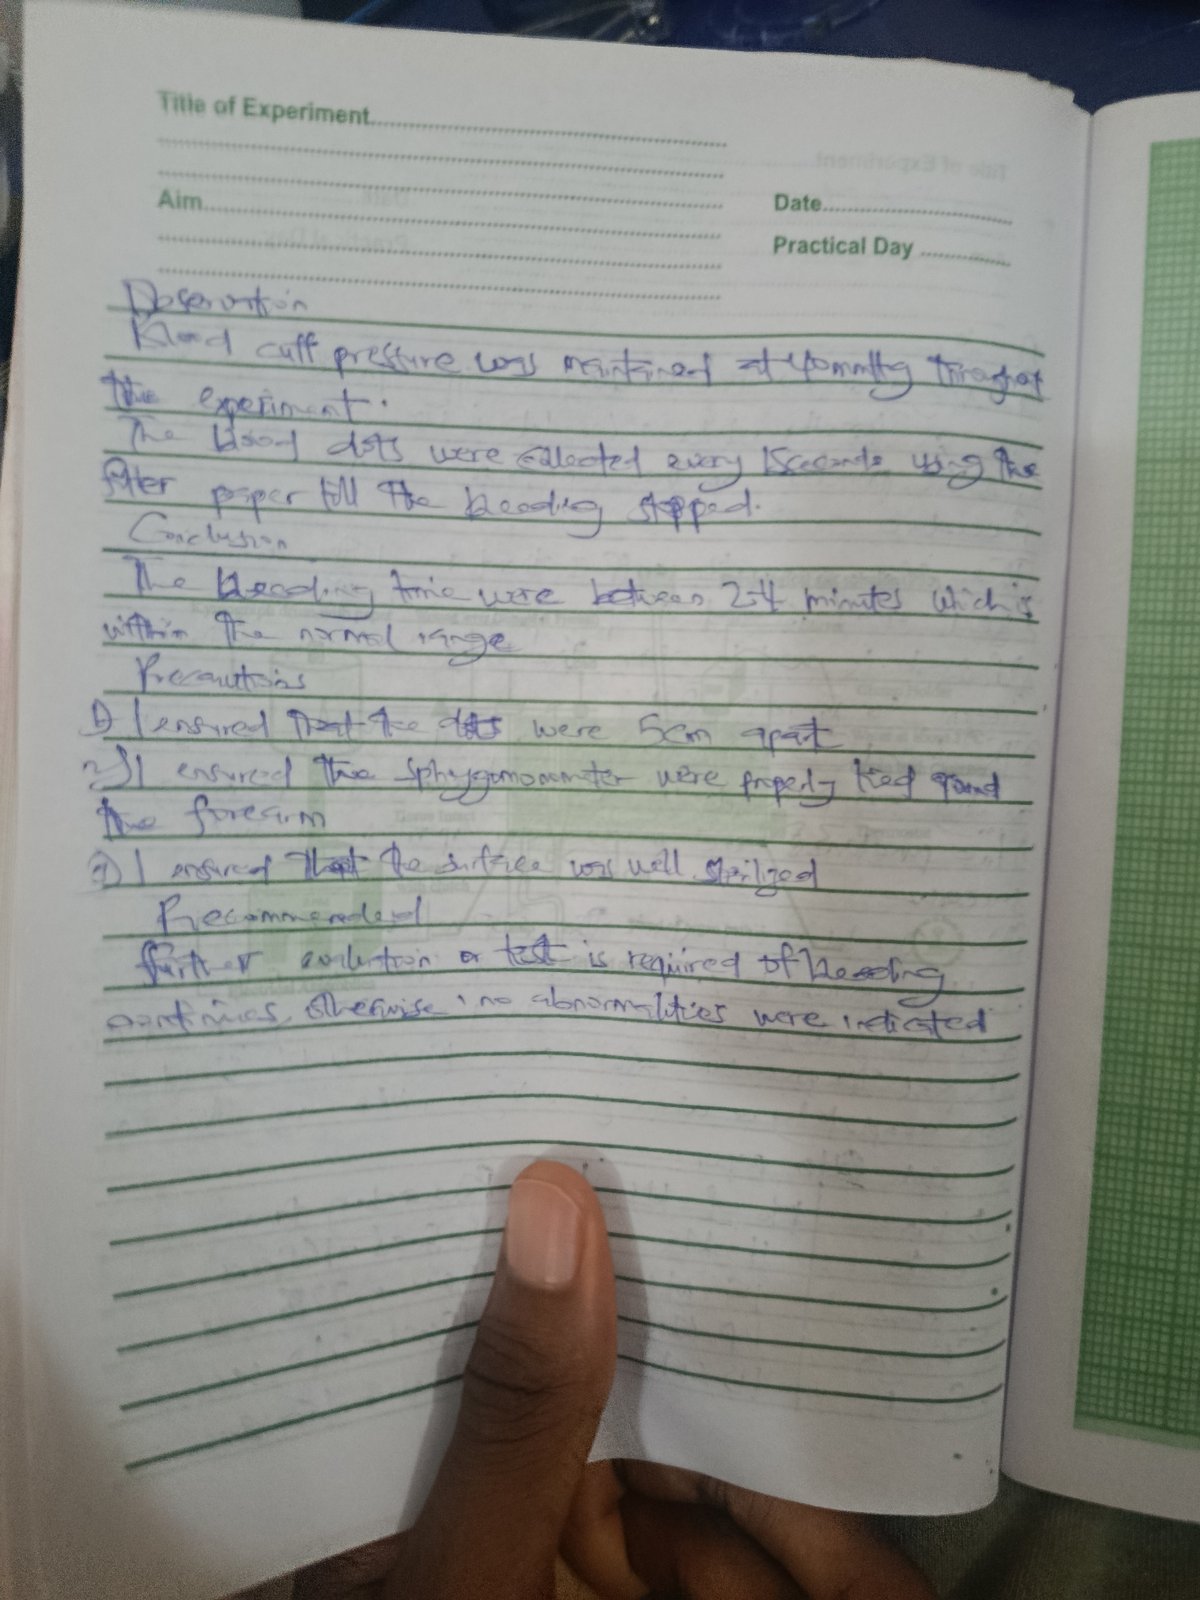 Title of Experiment
Aim
Date
Practical Day
Observation
Blood cuff pressure was maintained at 40mmHg throughout
the experiment.
The blood dots were collected every 15seconds using the
filter paper till the bleeding stopped.
Conclusion
The bleeding time were between 2-4 minutes which is
within the normal range
Precautions
1) I ensured that the dots were 5cm apart
2) I ensured the sphygmomameter were properly tied round
the forearm
3) I ensured that the surface was well sterilized
Recommended
further evaluation or test is required if bleeding
continues, otherwise, no abnormalities were indicated